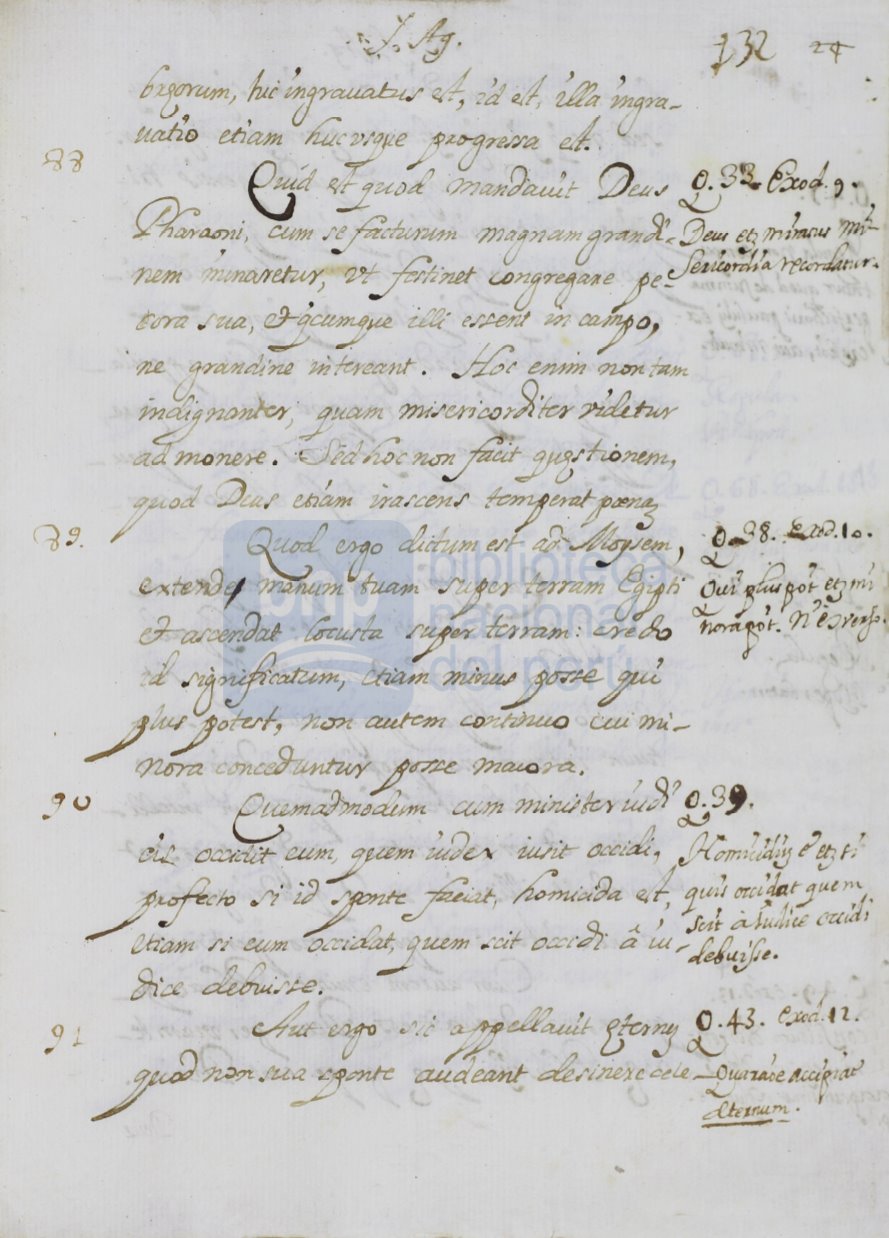 S. Ag.
132 24
brorum, hic ingravatus est, id est, illa ingra-
vatio etiam hucusque progressa est.
88
Quid est quod mandavit Deus
Pharaoni, cum se facturum magnam grandi-
nem minaretur, ut festinet congregare pe-
cora sua, et qcumque illi essent in campo,
ne grandine intereant. Hoc enim non tam
indignanter, quam misericorditer videtur
admonere. Sed hoc non facit quęstionem,
quod Deus etiam irascens temperat pœnaz
Q. 33. Exod. 9.
Deus etz iratus mi-
sericordia recordatur.
89.
Quod ergo dictum est ad Moysem,
extende manum tuam super terram Egipti
et ascendat locusta super terram: credo
id significatum, etiam minus posse qui
plus potest, non autem continuo cui mi-
nora conceduntur posse maiora.
Q. 38. Exod. 10.
Qui plus pot etz mi
nora pot. n è verso.
90
Quemadmodum cum minister iudi
cis occidit eum, quem iudex iusit occidi,
profecto si id sponte faciat, homicida est,
etiam si eum occidat, quem scit occidi â iu-
dice debuisse.
Q. 39.
Homicidiu ẽ etz si
quis occidat quem
scit à iudice occidi
debuisse.
91
Aut ergo sic appellavit ęternuz
quod non sua sponte audeant desinere cele-
Q. 43. Exod. 12.
Qua raõe accipiat
æternum.
biblioteca
nacional
del perú
bnp